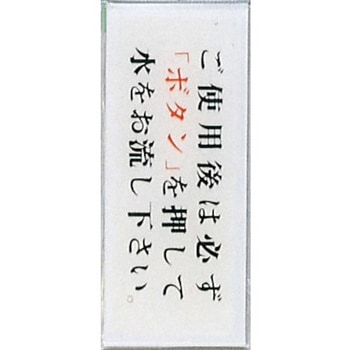 ご使用後は必ず
「ボタン」を押して
水をお流し下さい。